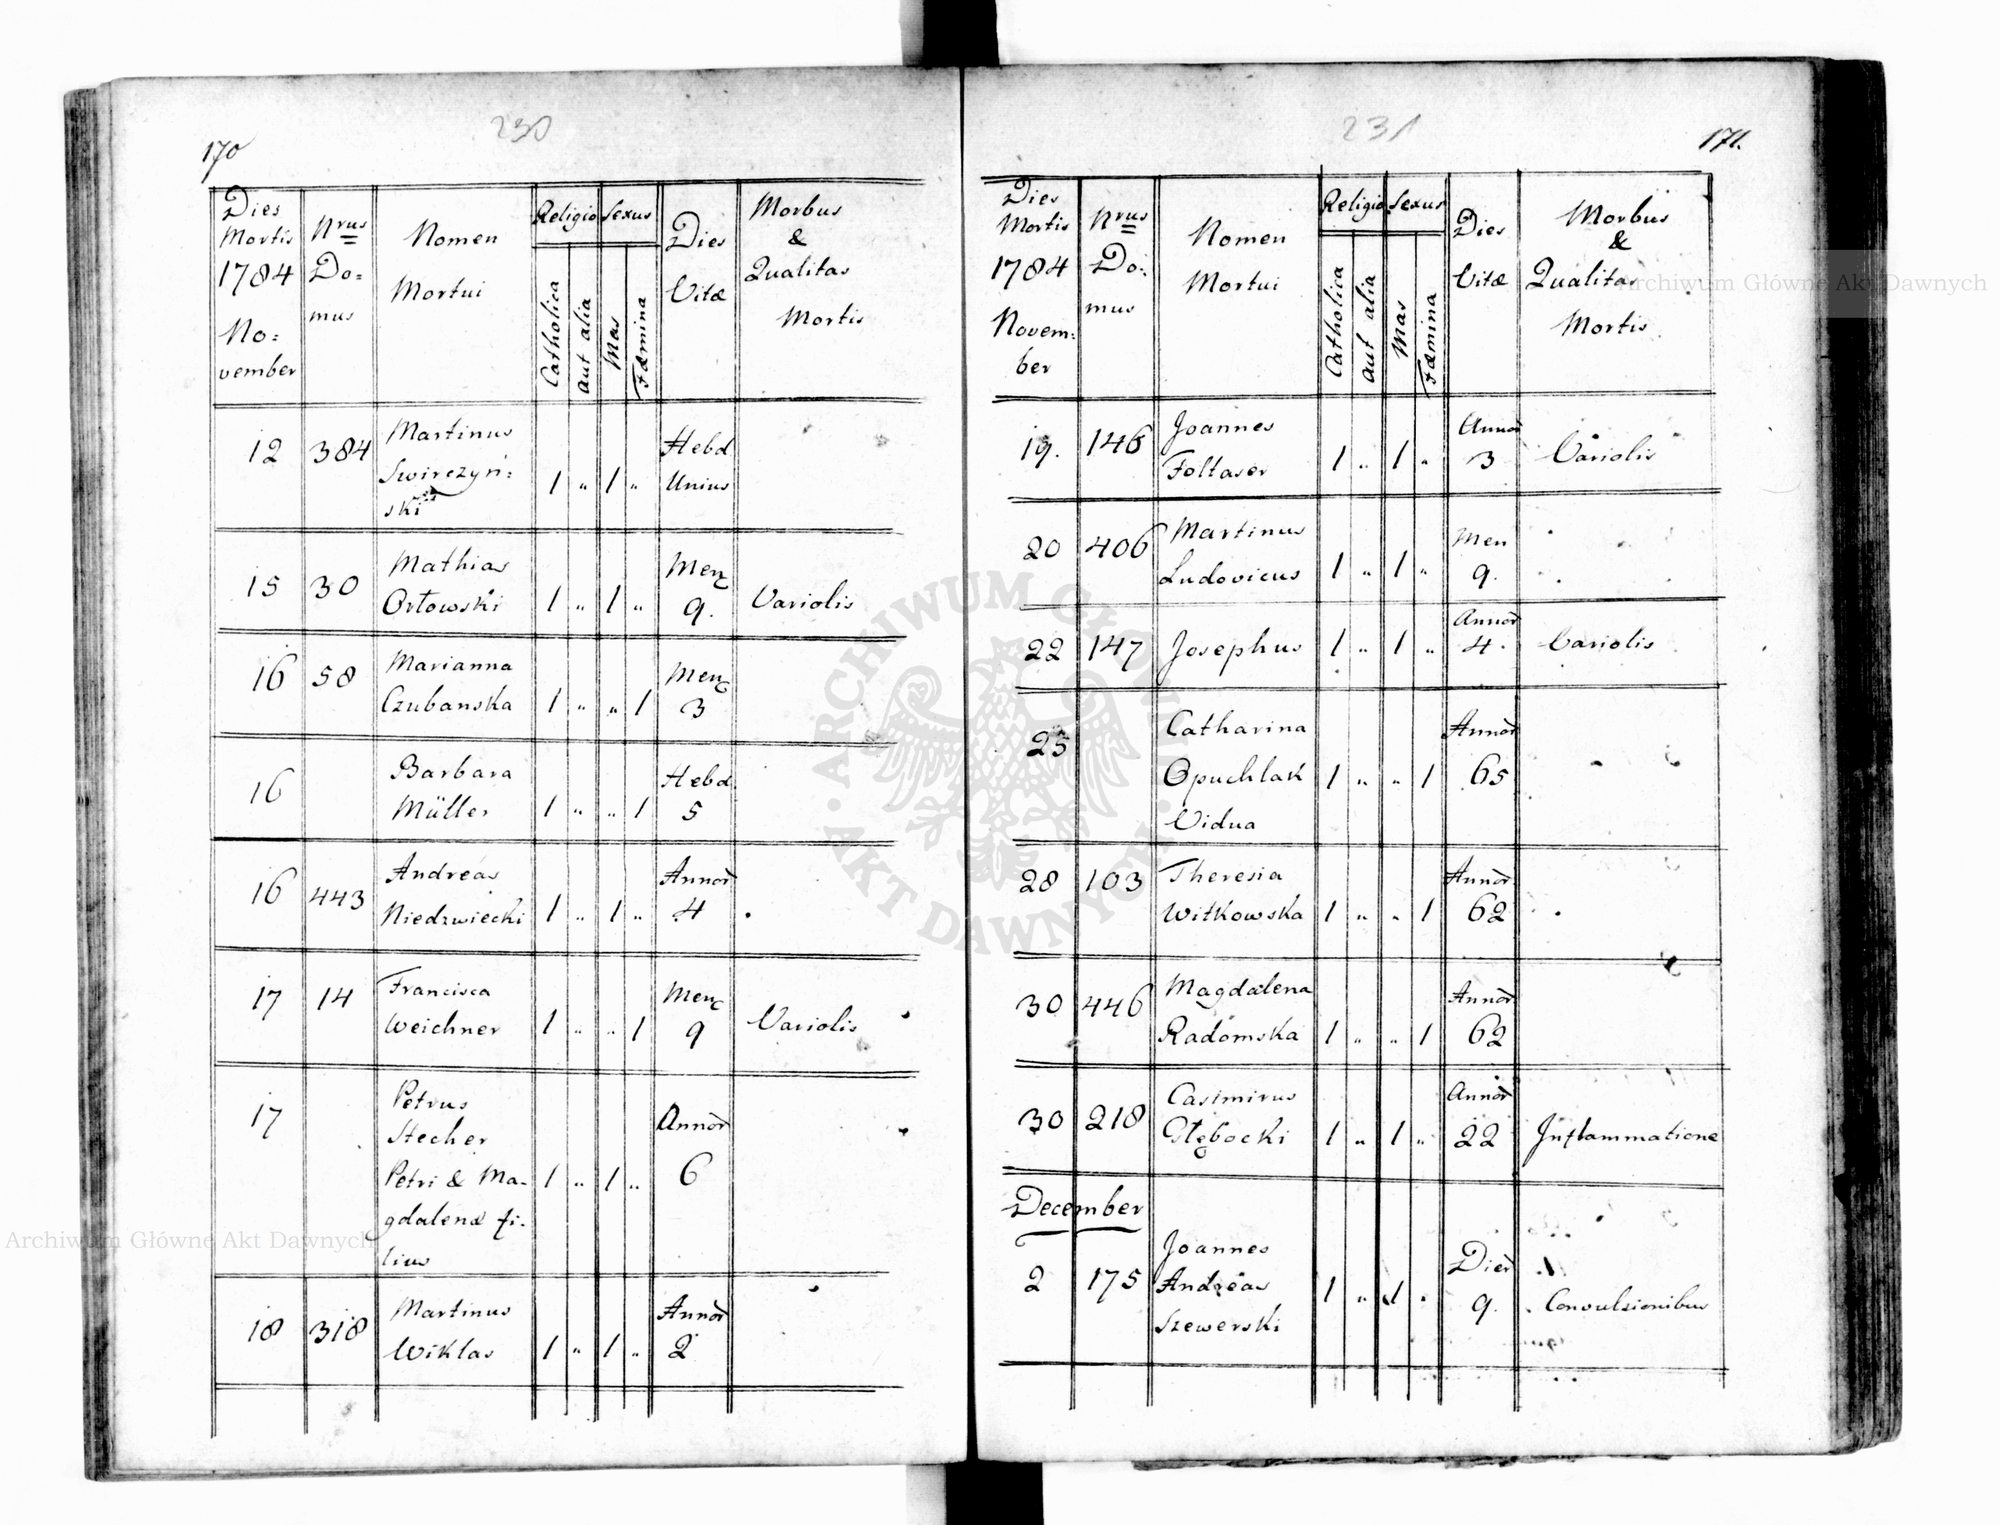 170
230
Dies
Mortis
1784
No:
vember
Nrus
Do:
mus
Nomen
Mortui
Religio
Catholica
Aut alia
Sexus
Mas
Fæmina
Dies
Vitæ
Morbus
&
Qualitas
Mortis
12 384 Martinus Hebd
Swirczyń: 1 " 1 " Unius
ski
15 30 Mathias Menz
Orłowski 1 " 1 " 9. Variolis
16 58 Marianna Menz
Czubanska 1 " " 1 3
16 Barbara Hebd
Müller 1 " " 1 5
16 443 Andreas Annor
Niedzwiecki 1 " 1 " 4
17 14 Francisca Menz
Weichner 1 " " 1 9 Variolis
17 Petrus
Stecher Annor
Petri & Ma- 1 " 1 " 6
gdalenæ fi-
lius
18 318 Martinus Annor
Wiklas 1 " 1 " 2
231
171.
Dies
Mortis
1784
Novem:
ber
Nrus
Do:
mus
Nomen
Mortui
Religio
Catholica
Aut alia
Sexus
Mas
Fæmina
Dies
Vitæ
Morbus
&
Qualitas
Mortis
19. 146 Joannes Annor
Foltaser 1 " 1 " 3 Variolis
20 406 Martinus Men
Ludovicus 1 " 1 " 9.
22 147 Josephus 1 " 1 " Annor 4. Variolis
25 Catharina Annor
Opuchlak 1 " " 1 65
Vidua
28 103 Theresia Annor
Witkowska 1 " " 1 62
30 446 Magdalena Annor
Radomska 1 " " 1 62
30 218 Casimirus Annor
Głębocki 1 " 1 " 22 Inflammatione
December
Joannes
2 175 Andreas 1 " 1 " Dier 9. Convulsionibus
Szewerski
Archiwum Główne Akt Dawnych
Archiwum Główne Akt Dawnych
ARCHIWUM GŁÓWNE AKT DAWNYCH